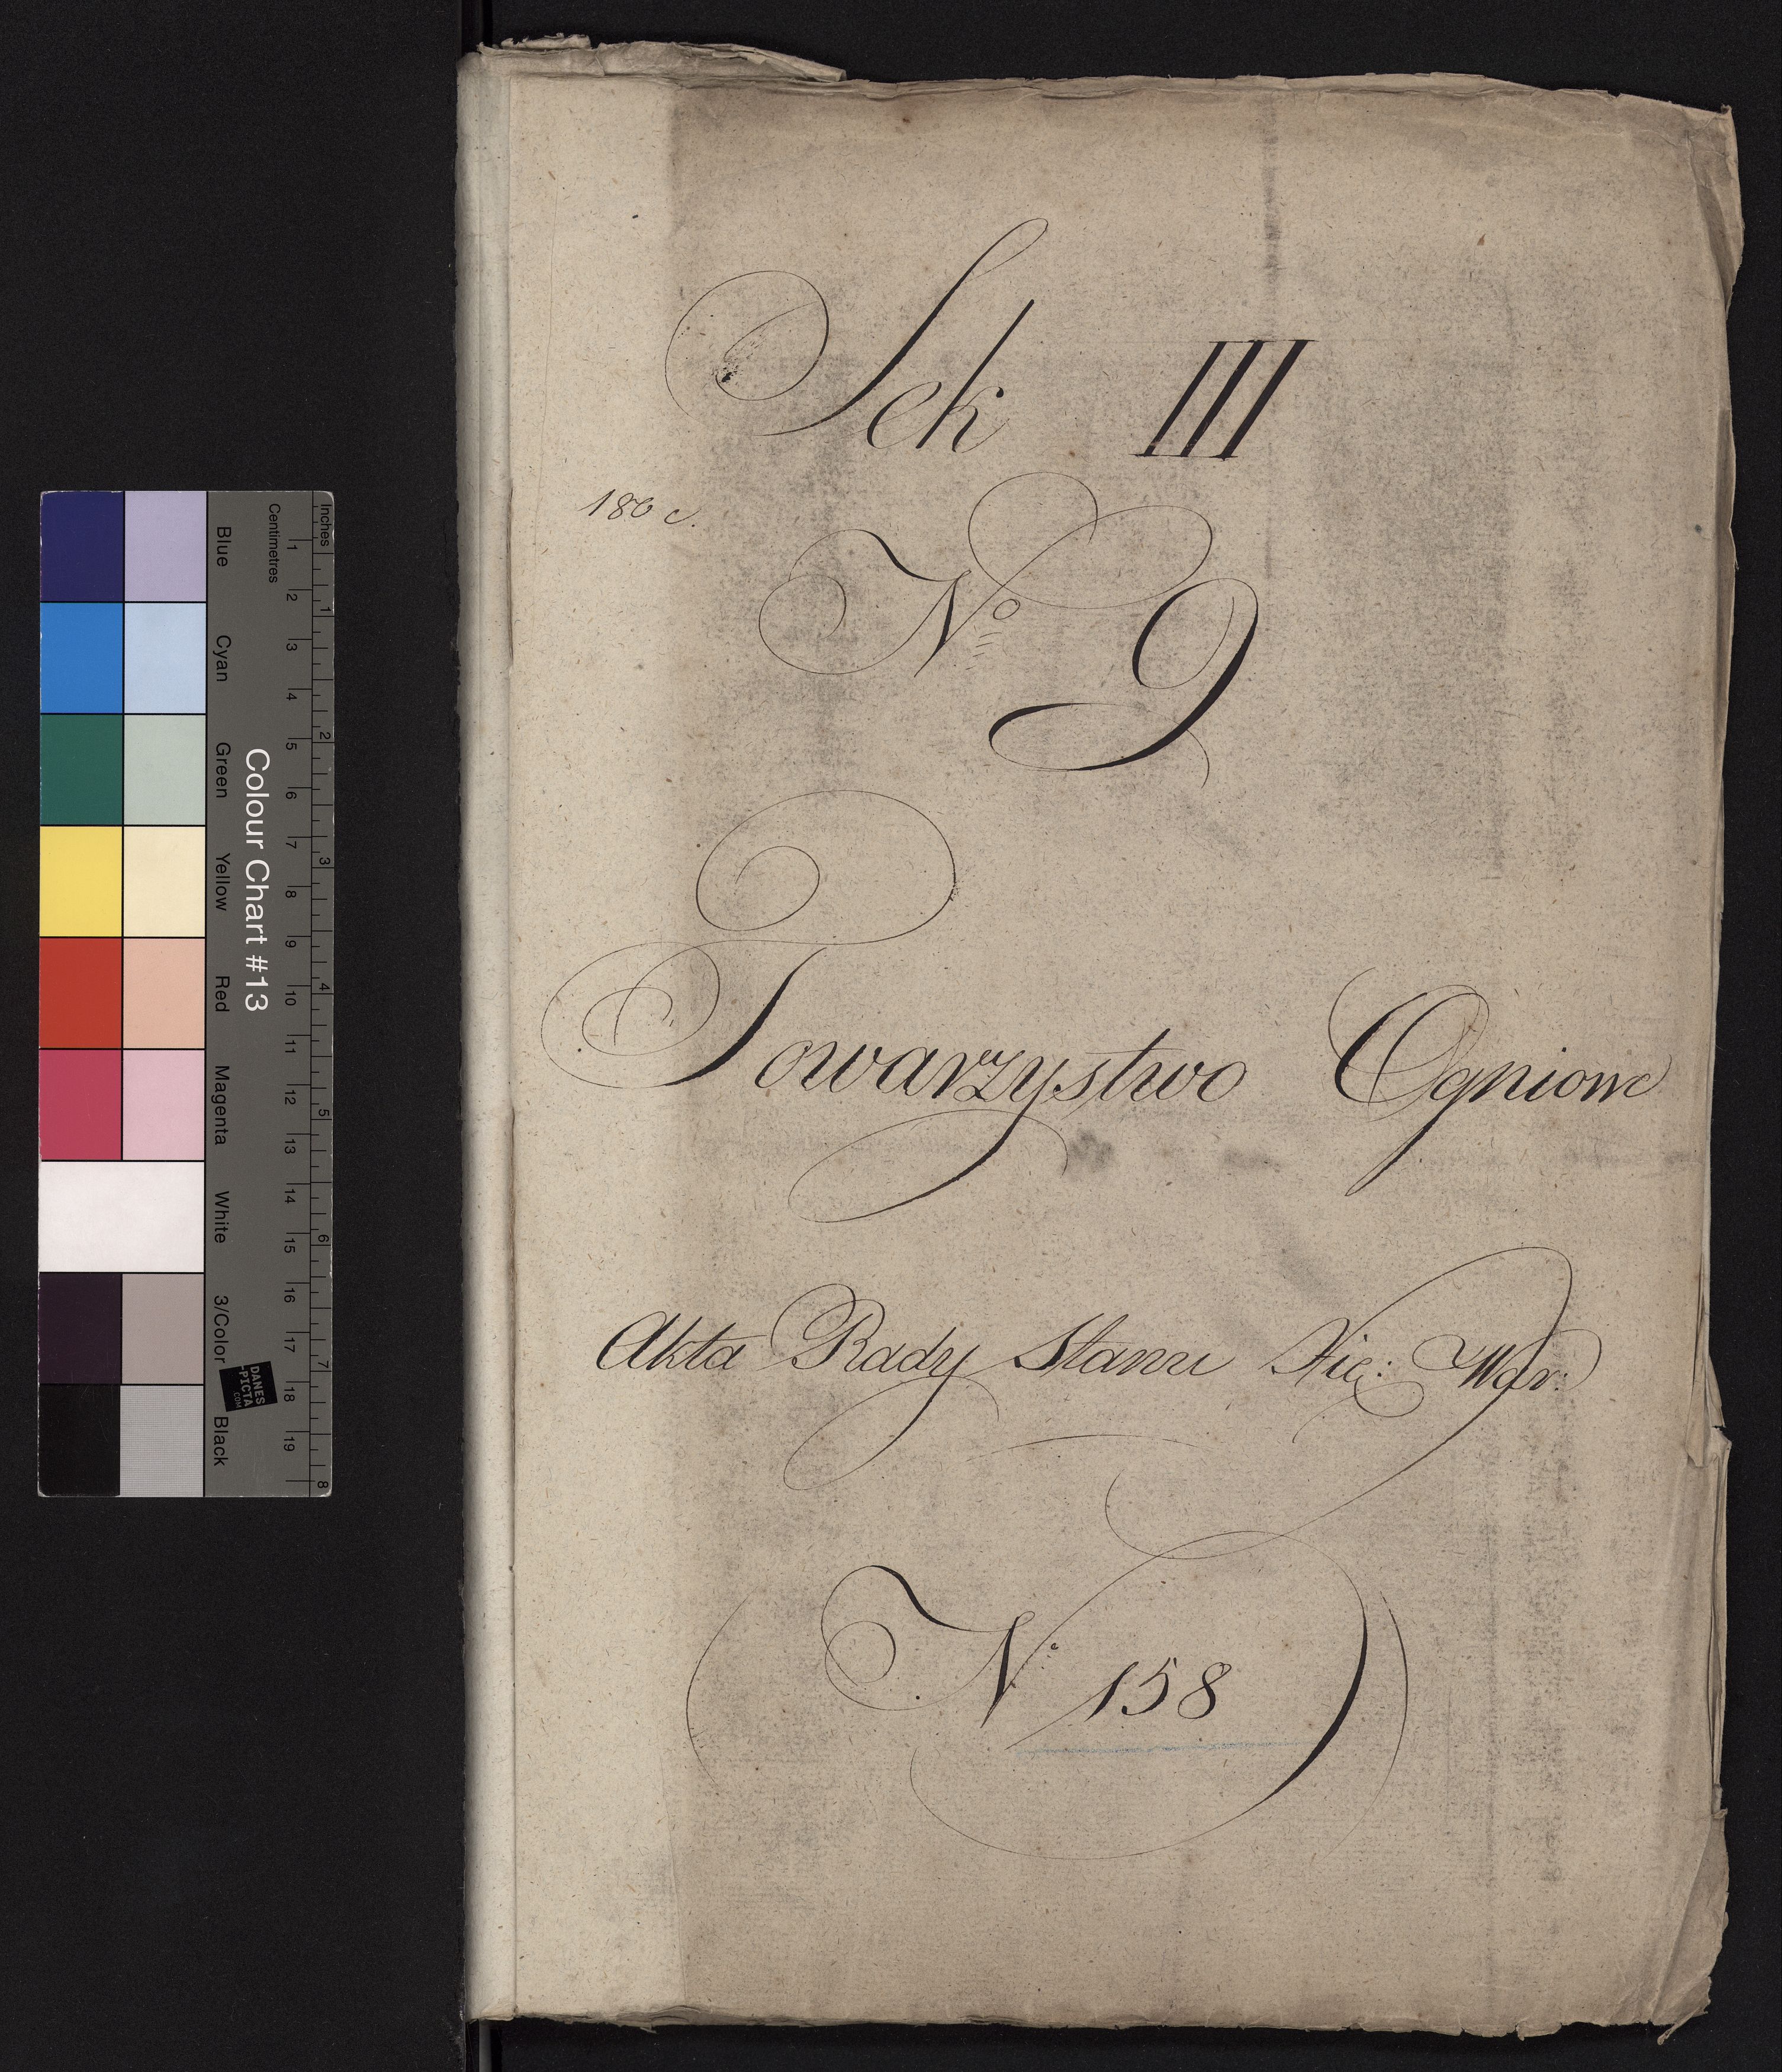 Sek III
180 c.
No 9
Towarzystwo Ogniowe
Akta Rady Stanu Xię: War:
No 158
Colour Chart #13
Blue Cyan Green Yellow Red Magenta White 3/Color Black
Centimetres 1 2 3 4 5 6 7 8 9 10 11 12 13 14 15 16 17 18 19
Inches 1 2 3 4 5 6 7 8
DANES
PICTA
.COM